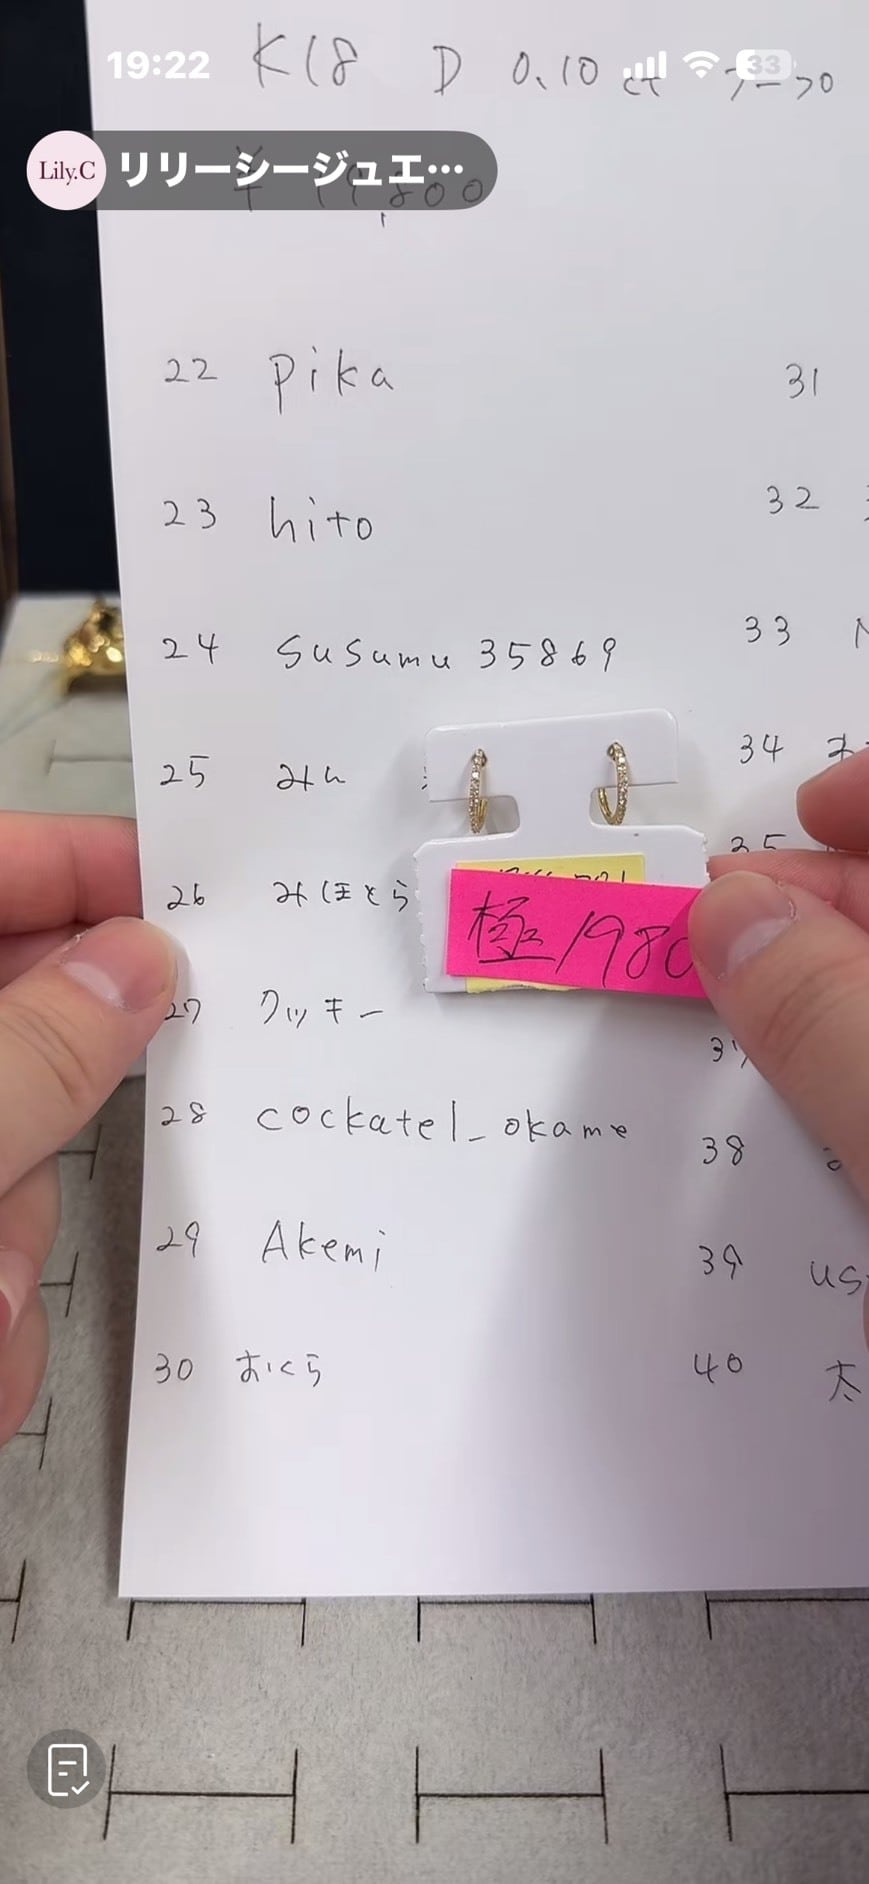 19:22
33
K18 D 0.10 ct フープ
Lily.C リリーシージュエ…
¥ 19,800
22 pika
23 hito
24 susumu 35869
25 みん
26 みほとら
27 クッキー
28 cockatel_okame
29 Akemi
30 おくら
31
32
33
34
35
極 1980
37
38
39 us
40 太